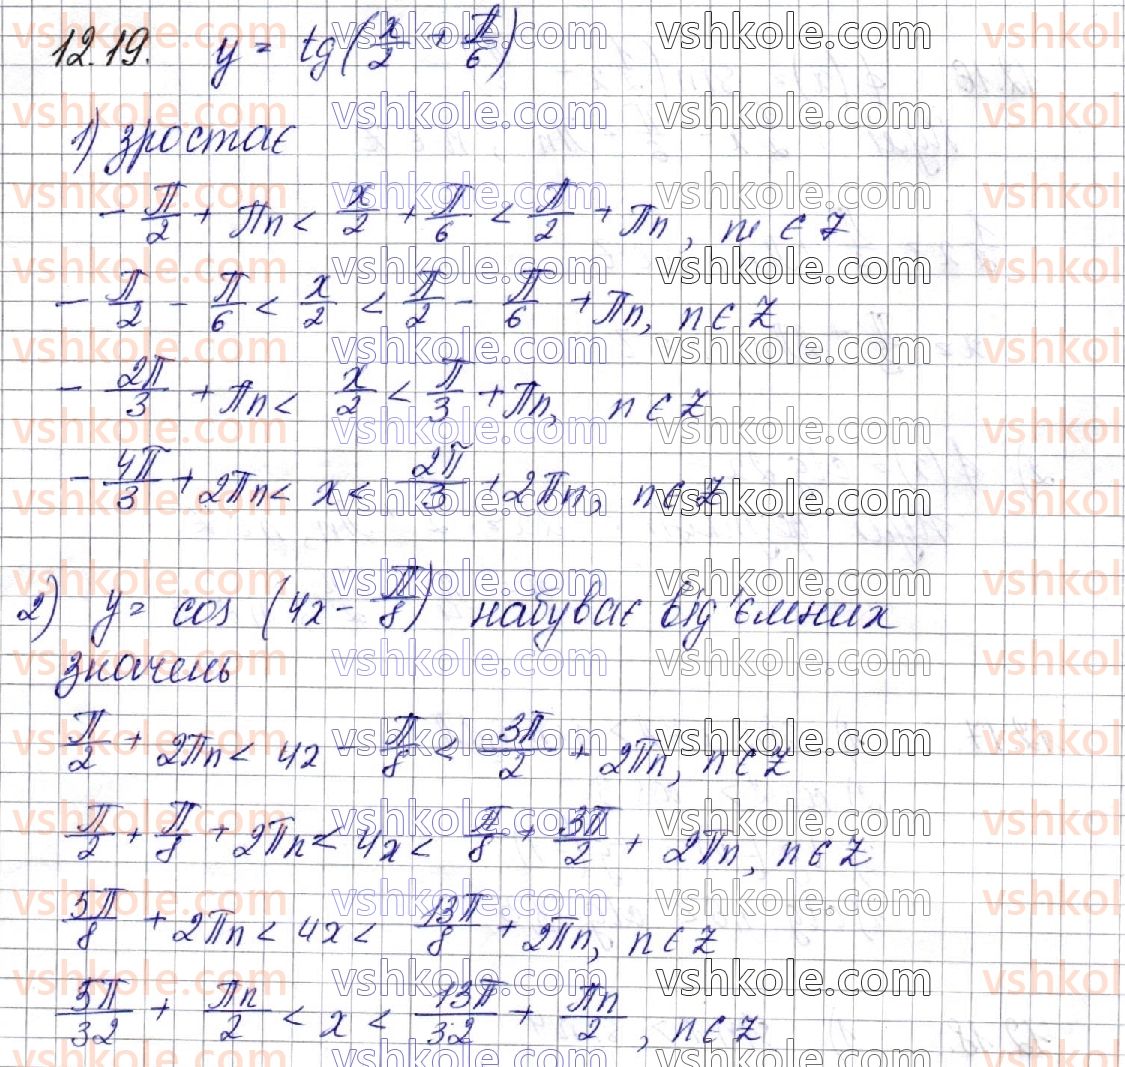 12.19. y = tg(x/2 + π/6)
1) зростає
-π/2 + πn < x/2 + π/6 < π/2 + πn, n ∈ Z
-π/2 - π/6 < x/2 < π/2 - π/6 + πn, n ∈ Z
-2π/3 + πn < x/2 < π/3 + πn, n ∈ Z
-4π/3 + 2πn < x < 2π/3 + 2πn, n ∈ Z
2) y = cos (4x - π/8) набуває від'ємних
значень
π/2 + 2πn < 4x - π/8 < 3π/2 + 2πn, n ∈ Z
π/2 + π/8 + 2πn < 4x < π/8 + 3π/2 + 2πn, n ∈ Z
5π/8 + 2πn < 4x < 13π/8 + 2πn, n ∈ Z
5π/32 + πn/2 < x < 13π/32 + πn/2, n ∈ Z
vshkole.com